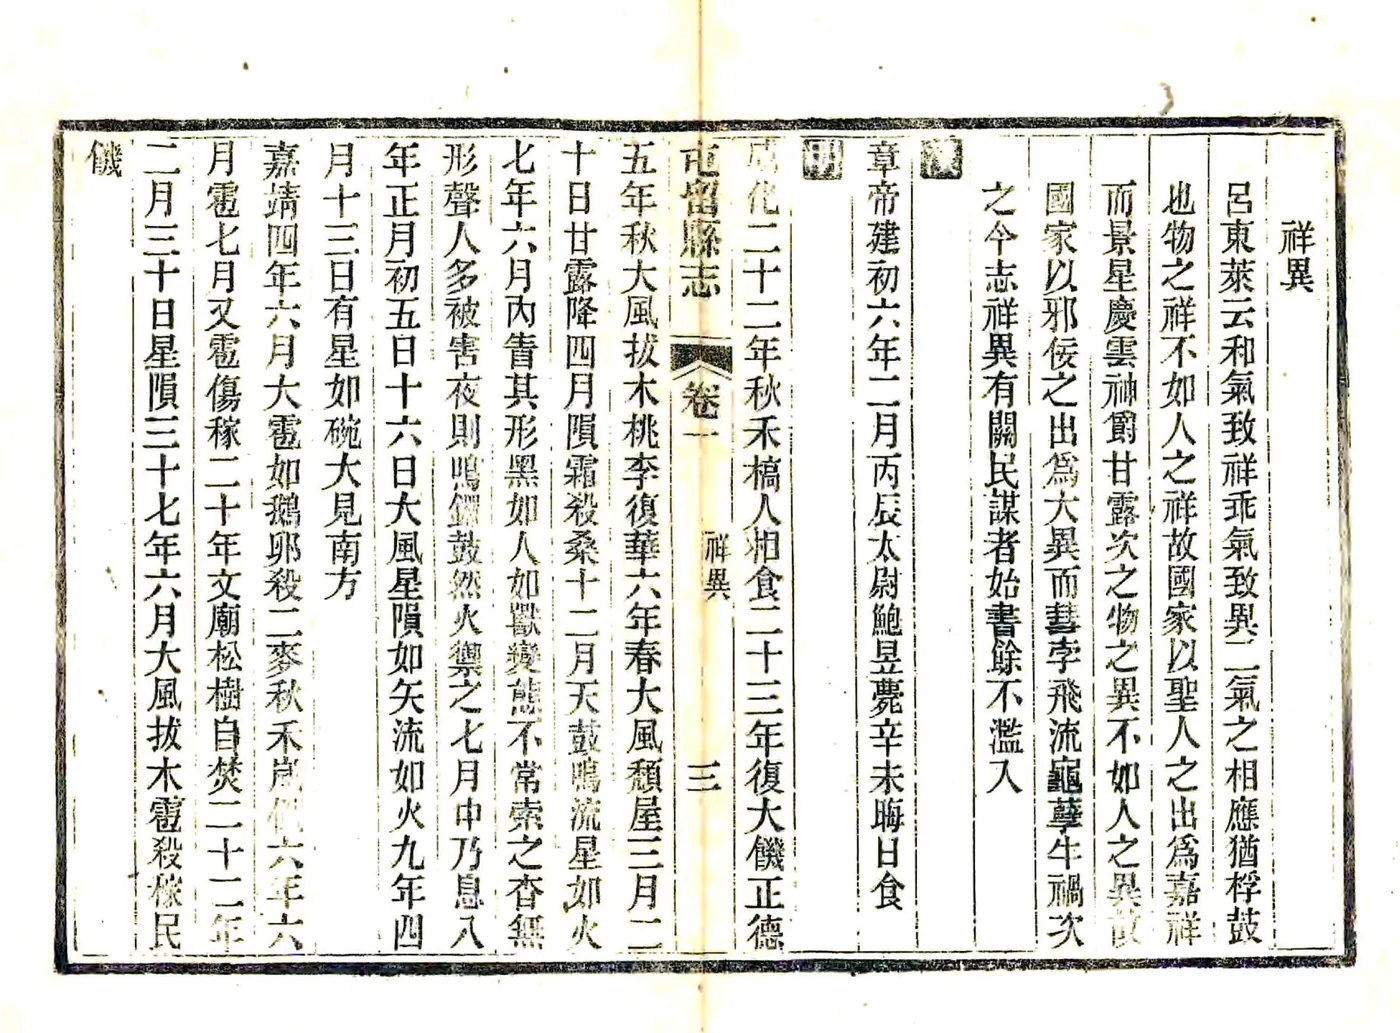 祥異
呂東萊云和氣致祥乖氣致異二氣之相應猶桴鼓
也物之祥不如人之祥故國家以聖人之出爲嘉祥
而景星慶雲神爵甘露次之物之異不如人之異故
國家以邪佞之出爲大異而彗孛飛流龜孽牛禍次
之今志祥異有關民謀者始書餘不濫入
漢
章帝建初六年二月丙辰太尉鮑昱薨辛未晦日食
明
成化二十二年秋禾槁人相食二十三年復大饑正德
屯留縣志 卷一 祥異 三
五年秋大風拔木桃李復華六年春大風頹屋三月二
十日甘露降四月隕霜殺桑十二月天鼓鳴流星如火
七年六月內眚其形黑如人如獸變態不常索之杳無
形聲人多被害夜則鳴鑼鼓然火禦之七月中乃息八
年正月初五日十六日大風星隕如矢流如火九年四
月十三日有星如碗大見南方
嘉靖四年六月大雹如鵝卵殺二麥秋禾歲六年六
月雹七月又雹傷稼二十年文廟松樹自焚二十二年
二月三十日星隕三十七年六月大風拔木雹殺稼民
饑